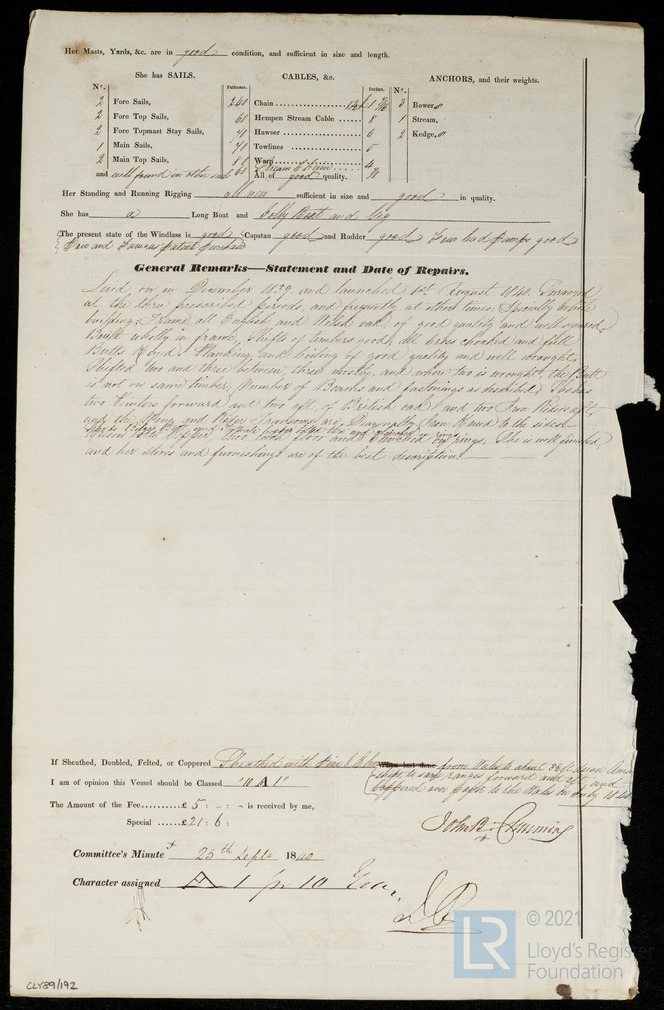 Her Masts, Yards, &c. are in good condition, and sufficient in size and length.
She has SAILS.
CABLES, &c.
ANCHORS, and their weights.
N°.
Fathoms.
Inches.
N°.
2 Fore Sails, 240 Chain 1 7/16 3 Bowers
2 Fore Top Sails, 60 Hempen Stream Cable 8 1 Stream,
2 Fore Topmast Stay Sails, 41 Hawser 6 2 Kedges
1 Main Sails, 41 Towlines 5
2 Main Top Sails, Warp 4
and well found in other sails 60 Stream Chain
All of good quality.
Her Standing and Running Rigging all new sufficient in size and good in quality.
She has a Long Boat and Jolly Boat and Gig
The present state of the Windlass is good Capstan good and Rudder good Four lead pumps good
General Remarks—Statement and Date of Repairs.
Laid on in December 1839 and launched 1st August 1840. Surveyed
at the three prescribed periods, and frequently at other times, Specially while
building. Frame all English and Welsh oak, of good quality and well squared.
Built wholly in frame, Shifts of timbers good, all bases chocked and full
Butts Planking and ceiling of good quality and well wrought.
Shifted two and three between three mostly, and when two is wrought, the Butt
is not on same timber. Number of Breasthooks and fastenings as described. She has
two Pointers forward and two aft, of British oak, and two Iron Riders aft
and the Wing and Transoms are Diagonally Iron Kneed to the sides
and clenched on rings. She is well finished,
and her stores and furnishings are of the best description.
If Sheathed, Doubled, Felted, or Coppered Sheathed with from Wales to about
I am of opinion this Vessel should be Classed "10 A 1" forward and aft and
Coppered over to the Wales in July 1840
The Amount of the Fee £ 5 : - : - is received by me,
Special £ 21 : 6 :
John B. Cummins
Committee's Minute 25th Septr 1840
Character assigned A 1 for 10 Years
© 2021
LR
Lloyd's Register
Foundation
CLY89/192